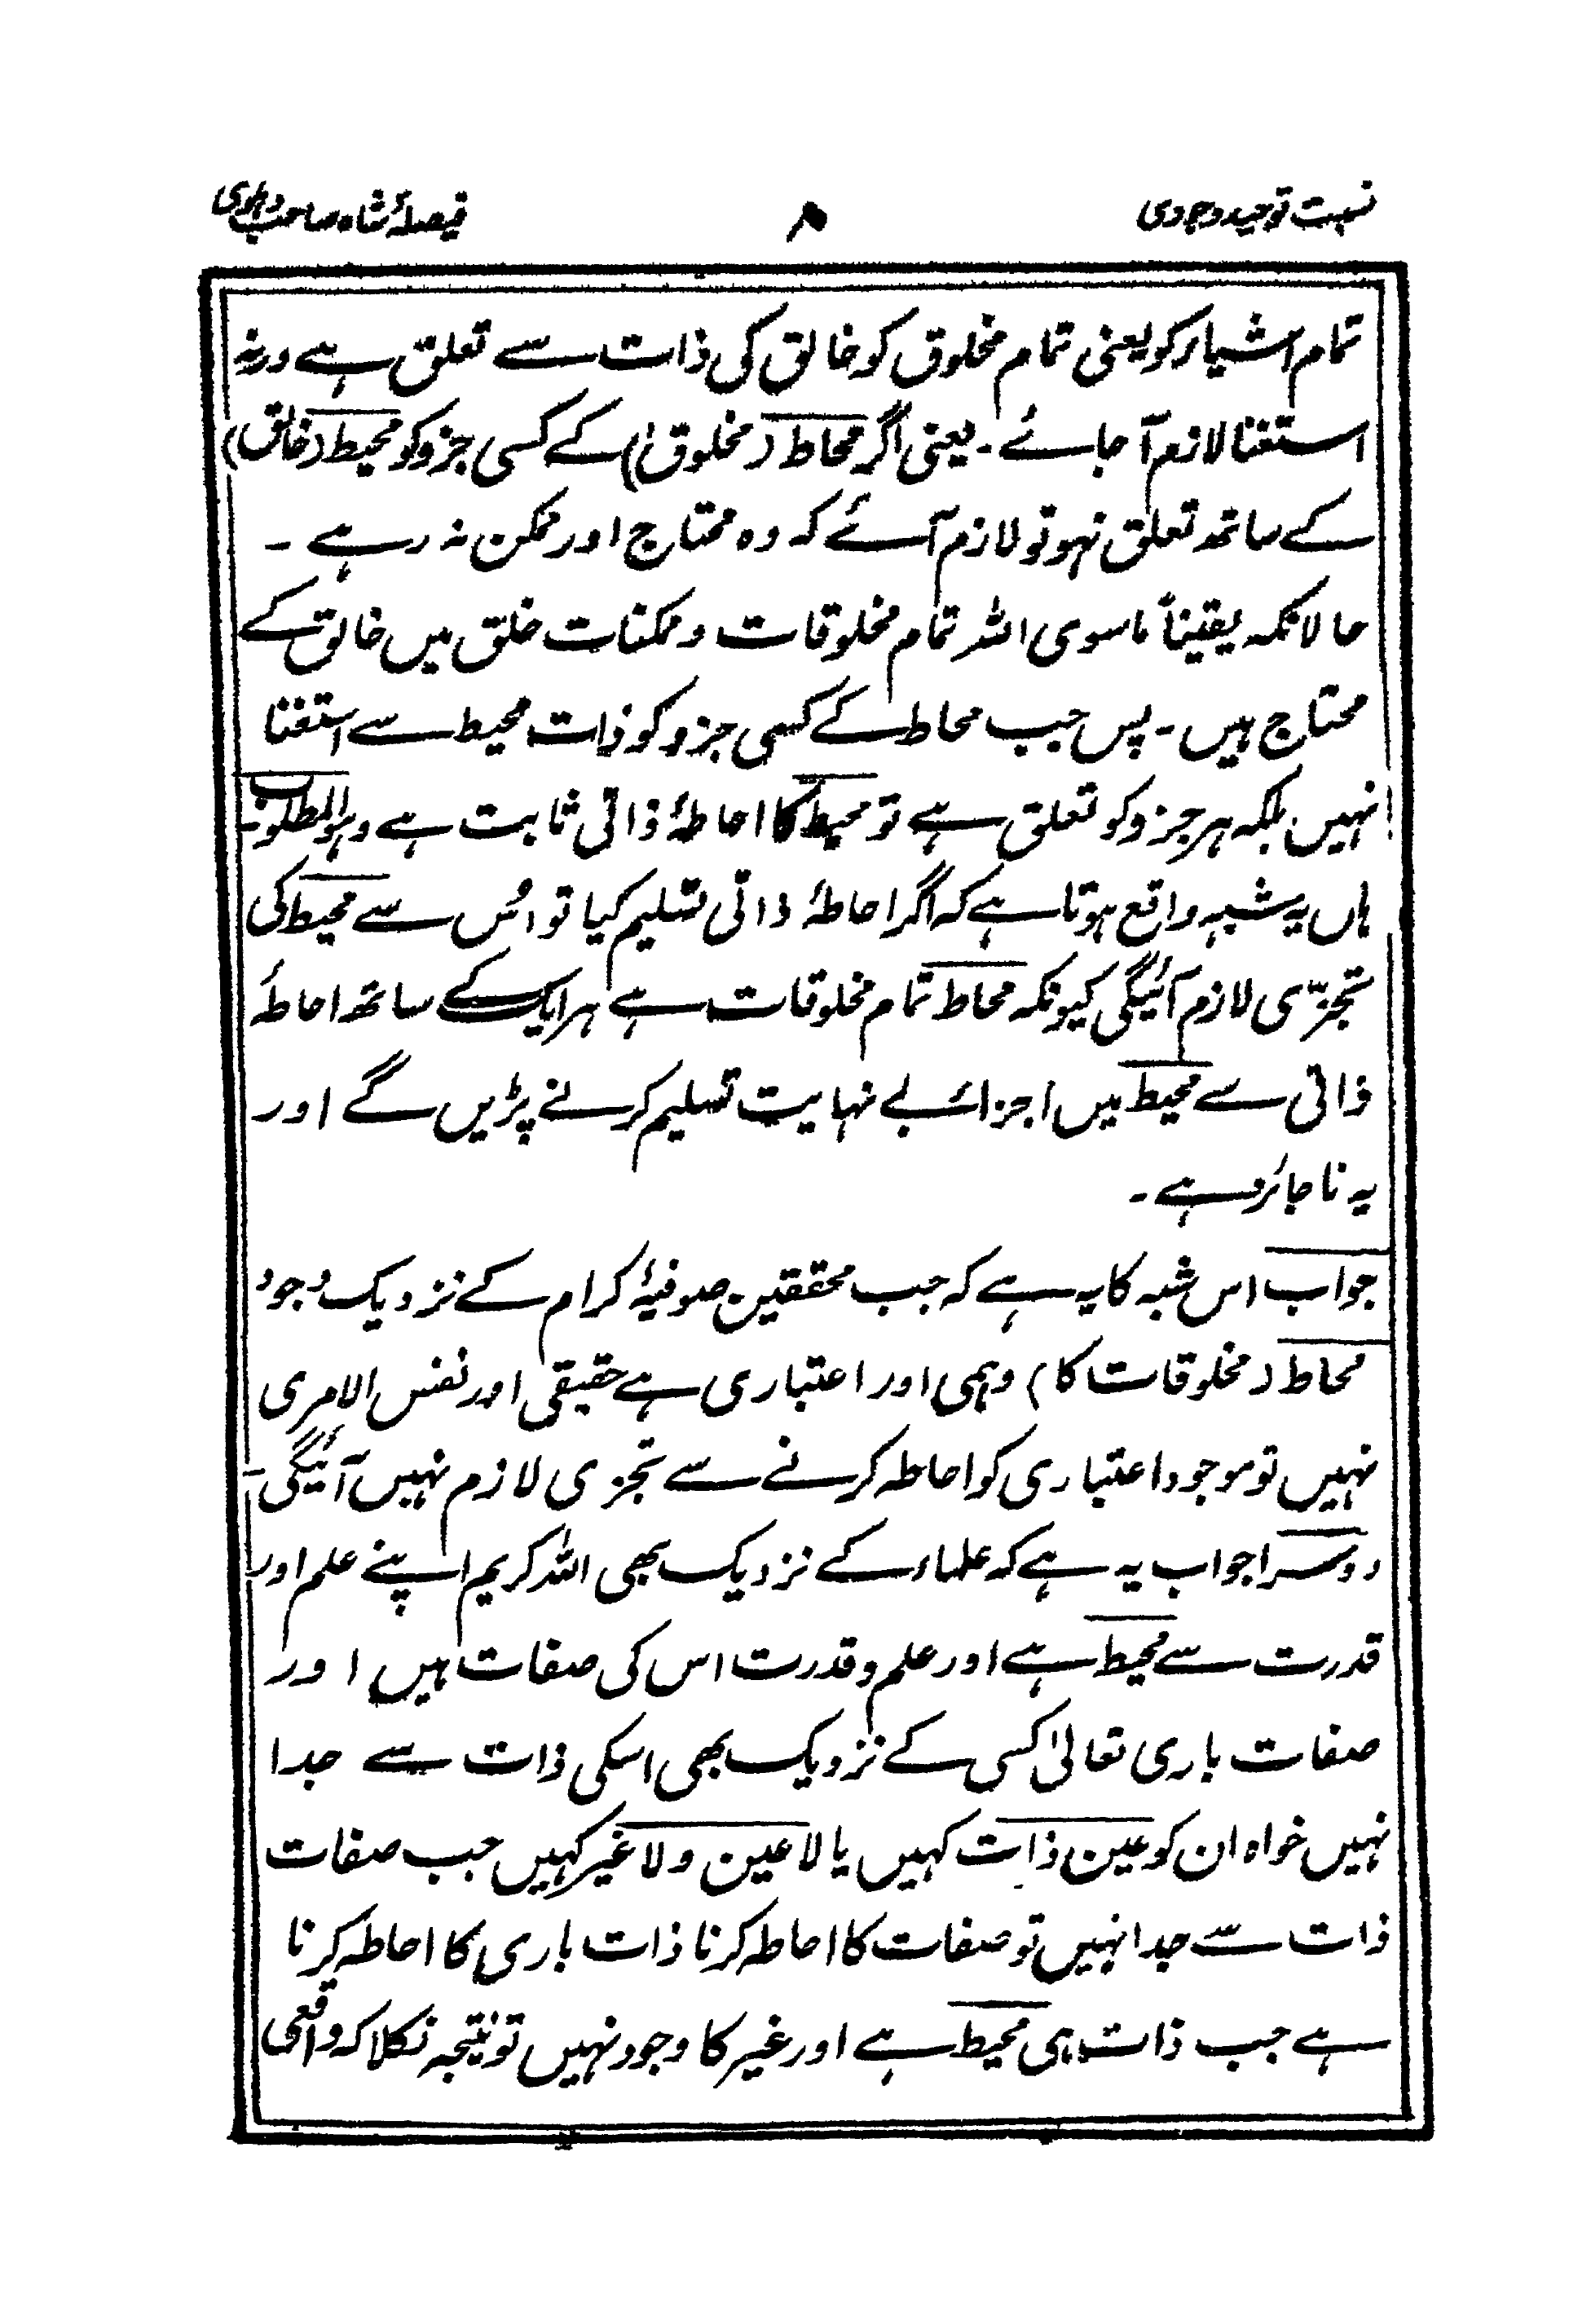 نسبت توحید وجودی
۸
فیصلۂ شاہ صاحب دہلوی
تمام اشیاء کو یعنی تمام مخلوق کو خالق کی ذات سے تعلق ہے ورنہ
استغنا لازم آ جائے ۔ یعنی اگر محاط (مخلوق) کے کسی جزو کو محیط (خالق)
کے ساتھ تعلق نہو تو لازم آئے کہ وہ محتاج اور ممکن نہ رہے ۔
حالانکہ یقیناً ماسوی اللہ تمام مخلوقات و ممکنات خلق میں خالق کے
محتاج ہیں ۔ پس جب محاط کے کسی جزو کو ذات محیط سے استغنا
نہیں بلکہ ہر جزو کو تعلق ہے تو محیط کا احاطۂ ذاتی ثابت ہے وہو المطلوب ۔
ہاں یہ شبہ واقع ہوتا ہے کہ اگر احاطۂ ذاتی تسلیم کیا تو اُس سے محیط کی
تجزّی لازم آئیگی کیونکہ محاط تمام مخلوقات ہے ہر ایک کے ساتھ احاطۂ
ذاتی سے محیط میں اجزائے بے نہایت تسلیم کرنے پڑیں گے اور
یہ ناجائز ہے ۔
جواب اس شبہ کا یہ ہے کہ جب محققین صوفیۂ کرام کے نزدیک وجود
محاط (مخلوقات کا) وہمی اور اعتباری ہے حقیقی اور نفس الامری
نہیں تو موجود اعتباری کو احاطہ کرنے سے تجزی لازم نہیں آئیگی ۔
دوسرا جواب یہ ہے کہ علماء کے نزدیک بھی اللہ کریم اپنے علم اور
قدرت سے محیط ہے اور علم و قدرت اس کی صفات ہیں اور
صفات باری تعالیٰ کسی کے نزدیک بھی اسکی ذات سے جدا
نہیں خواہ ان کو عین ذات کہیں یا لا عین ولا غیر کہیں جب صفات
ذات سے جدا نہیں تو صفات کا احاطہ کرنا ذات باری کا احاطہ کرنا
ہے جب ذات ہی محیط ہے اور غیر کا وجود نہیں تو نتیجہ نکلا کہ واقعی